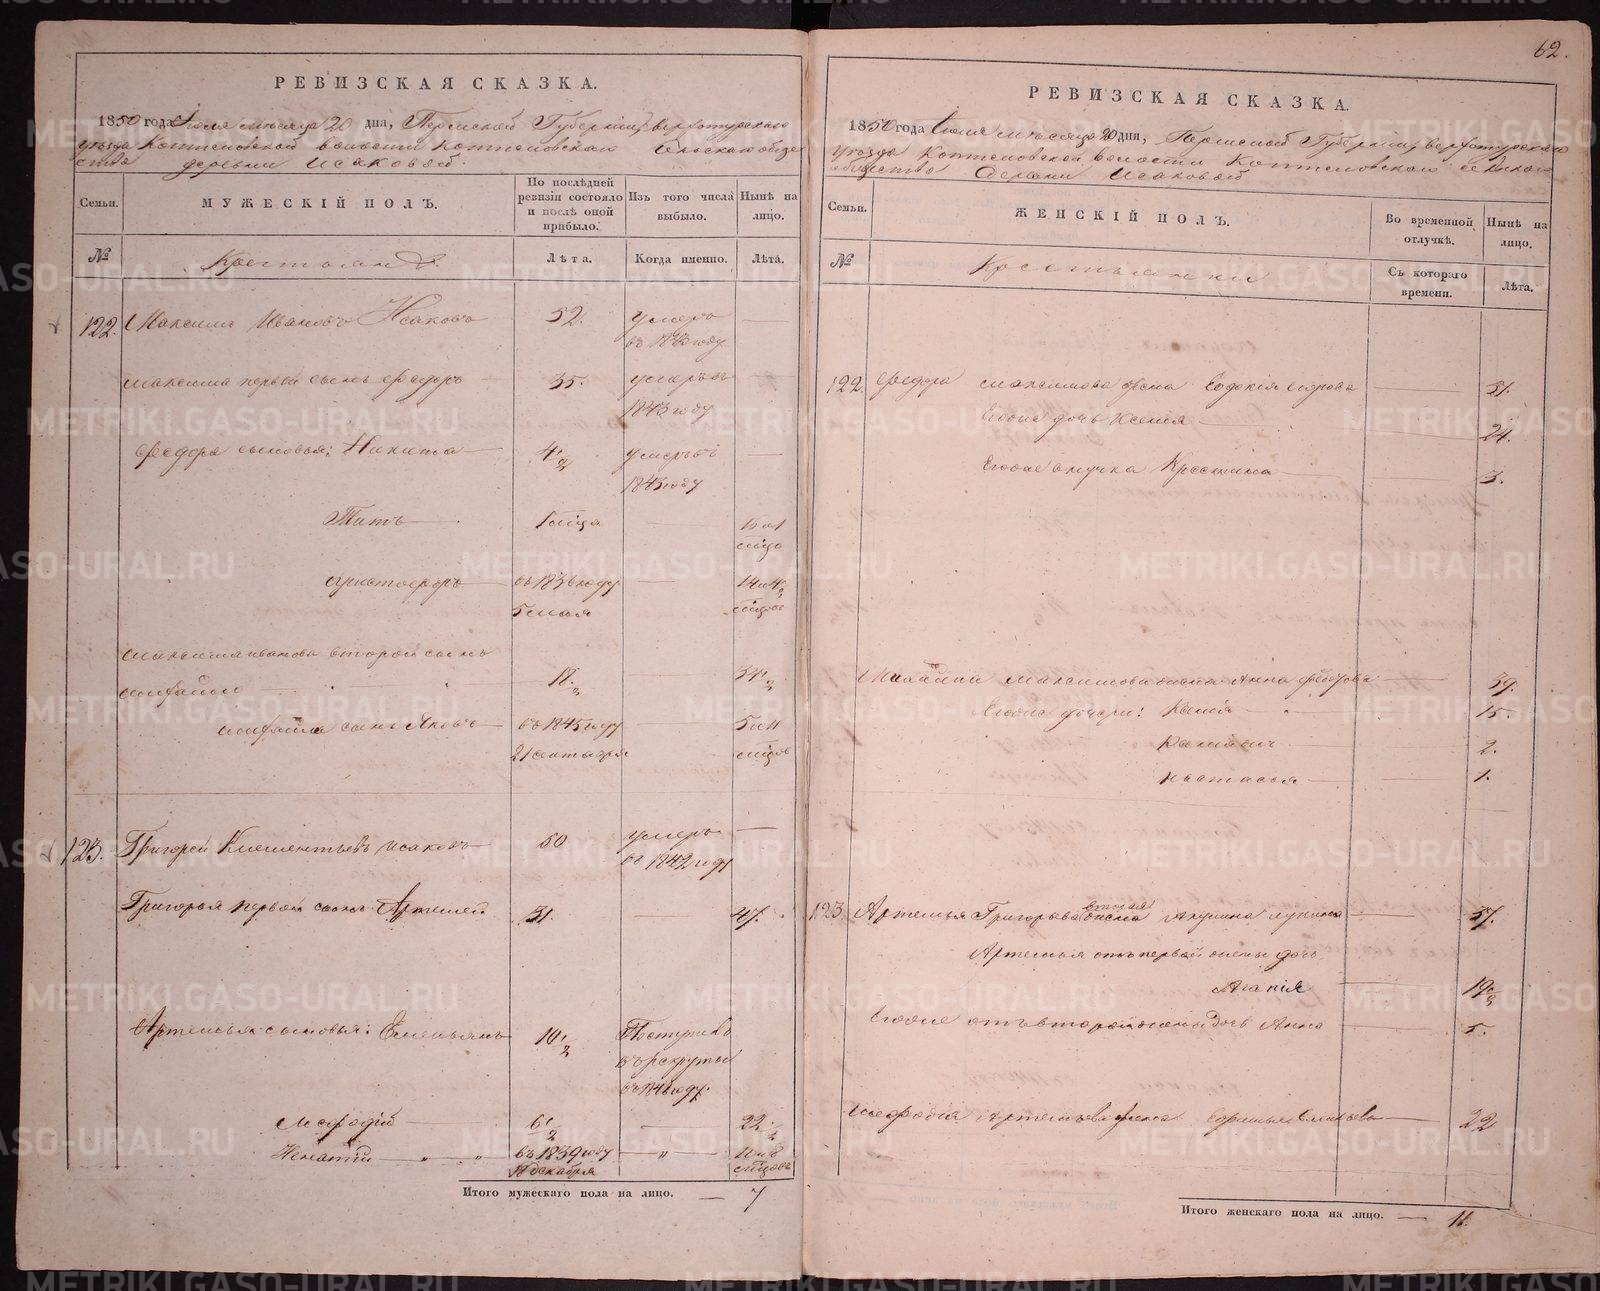 62.
РЕВИЗСКАЯ СКАЗКА.
1850 года Июля мѣсяца 20 дня, Пермской Губерніи, верхотурскаго
уѣзда Коптеловской волости Коптеловскаго Сельскаго обще
ства деревни Исаковой.
Семьи.
МУЖЕСКІЙ ПОЛЪ.
По послѣдней ревизіи состояло и послѣ оной прибыло.
Изъ того числа выбыло.
Нынѣ на лицо.
№
Крестьянъ
Лѣта.
Когда именно.
Лѣта.
122. Максимъ Ивановъ Исаковъ 52. умеръ
въ 1843 году
Максима первый сынъ Федоръ 35. умеръ въ
1843 году
Федора сыновья: Никита 4 1/2 умеръ въ
1843 году
Титъ 1 мѣсяца 16 и 1
мѣсяц
Христофоръ въ 1836 году 14 и 4
5 мая
Максима иванова второй сынъ
18. 34 1/2
сынъ Яковъ въ 1845 году 5 и 11
21 сентября мѣсяцов
123. Григорей Клементьевъ Исаковъ 50 умеръ
въ 1842 году
Григорья первой сынъ Артемей 31. 47.
Артемья сыновья: Емельянъ 10 1/2 Поступилъ
въ рекруты
въ 1846 году.
Мефодій 6 1/2 22 1/2
Игнатій въ 1839 году 10 и 6
декабря мѣсяцовъ
Итого мужескаго пола на лицо. — 7
РЕВИЗСКАЯ СКАЗКА.
1850 года Июля мѣсяца 20 дня, Пермской Губерніи, верхотурскаго
уѣзда Коптеловской волости Коптеловскаго сельскаго
общества деревни Исаковой
Семьи.
ЖЕНСКІЙ ПОЛЪ.
Во временной отлучкѣ.
Нынѣ на лицо.
№
Крестьянки
Съ котораго времени.
Лѣта.
122. Федора Максимова жена Евдокія Егорова 51.
Егоже дочь Ксенія 24.
Егоже внучка Крестина 3.
Михайлы Максимова жена Анна Федорова 39.
Егоже дочери: Ксенія 15.
2.
Настасья 1.
123. Артемья Григорьева вторая жена Акулина Лукина 37.
Артемья отъ первой жены дочь
Агапія 19 1/2
Егоже отъ второй жены дочь Анна 5.
Мефодія Артемьева жена 22
Итого женскаго пола на лицо. — 11.